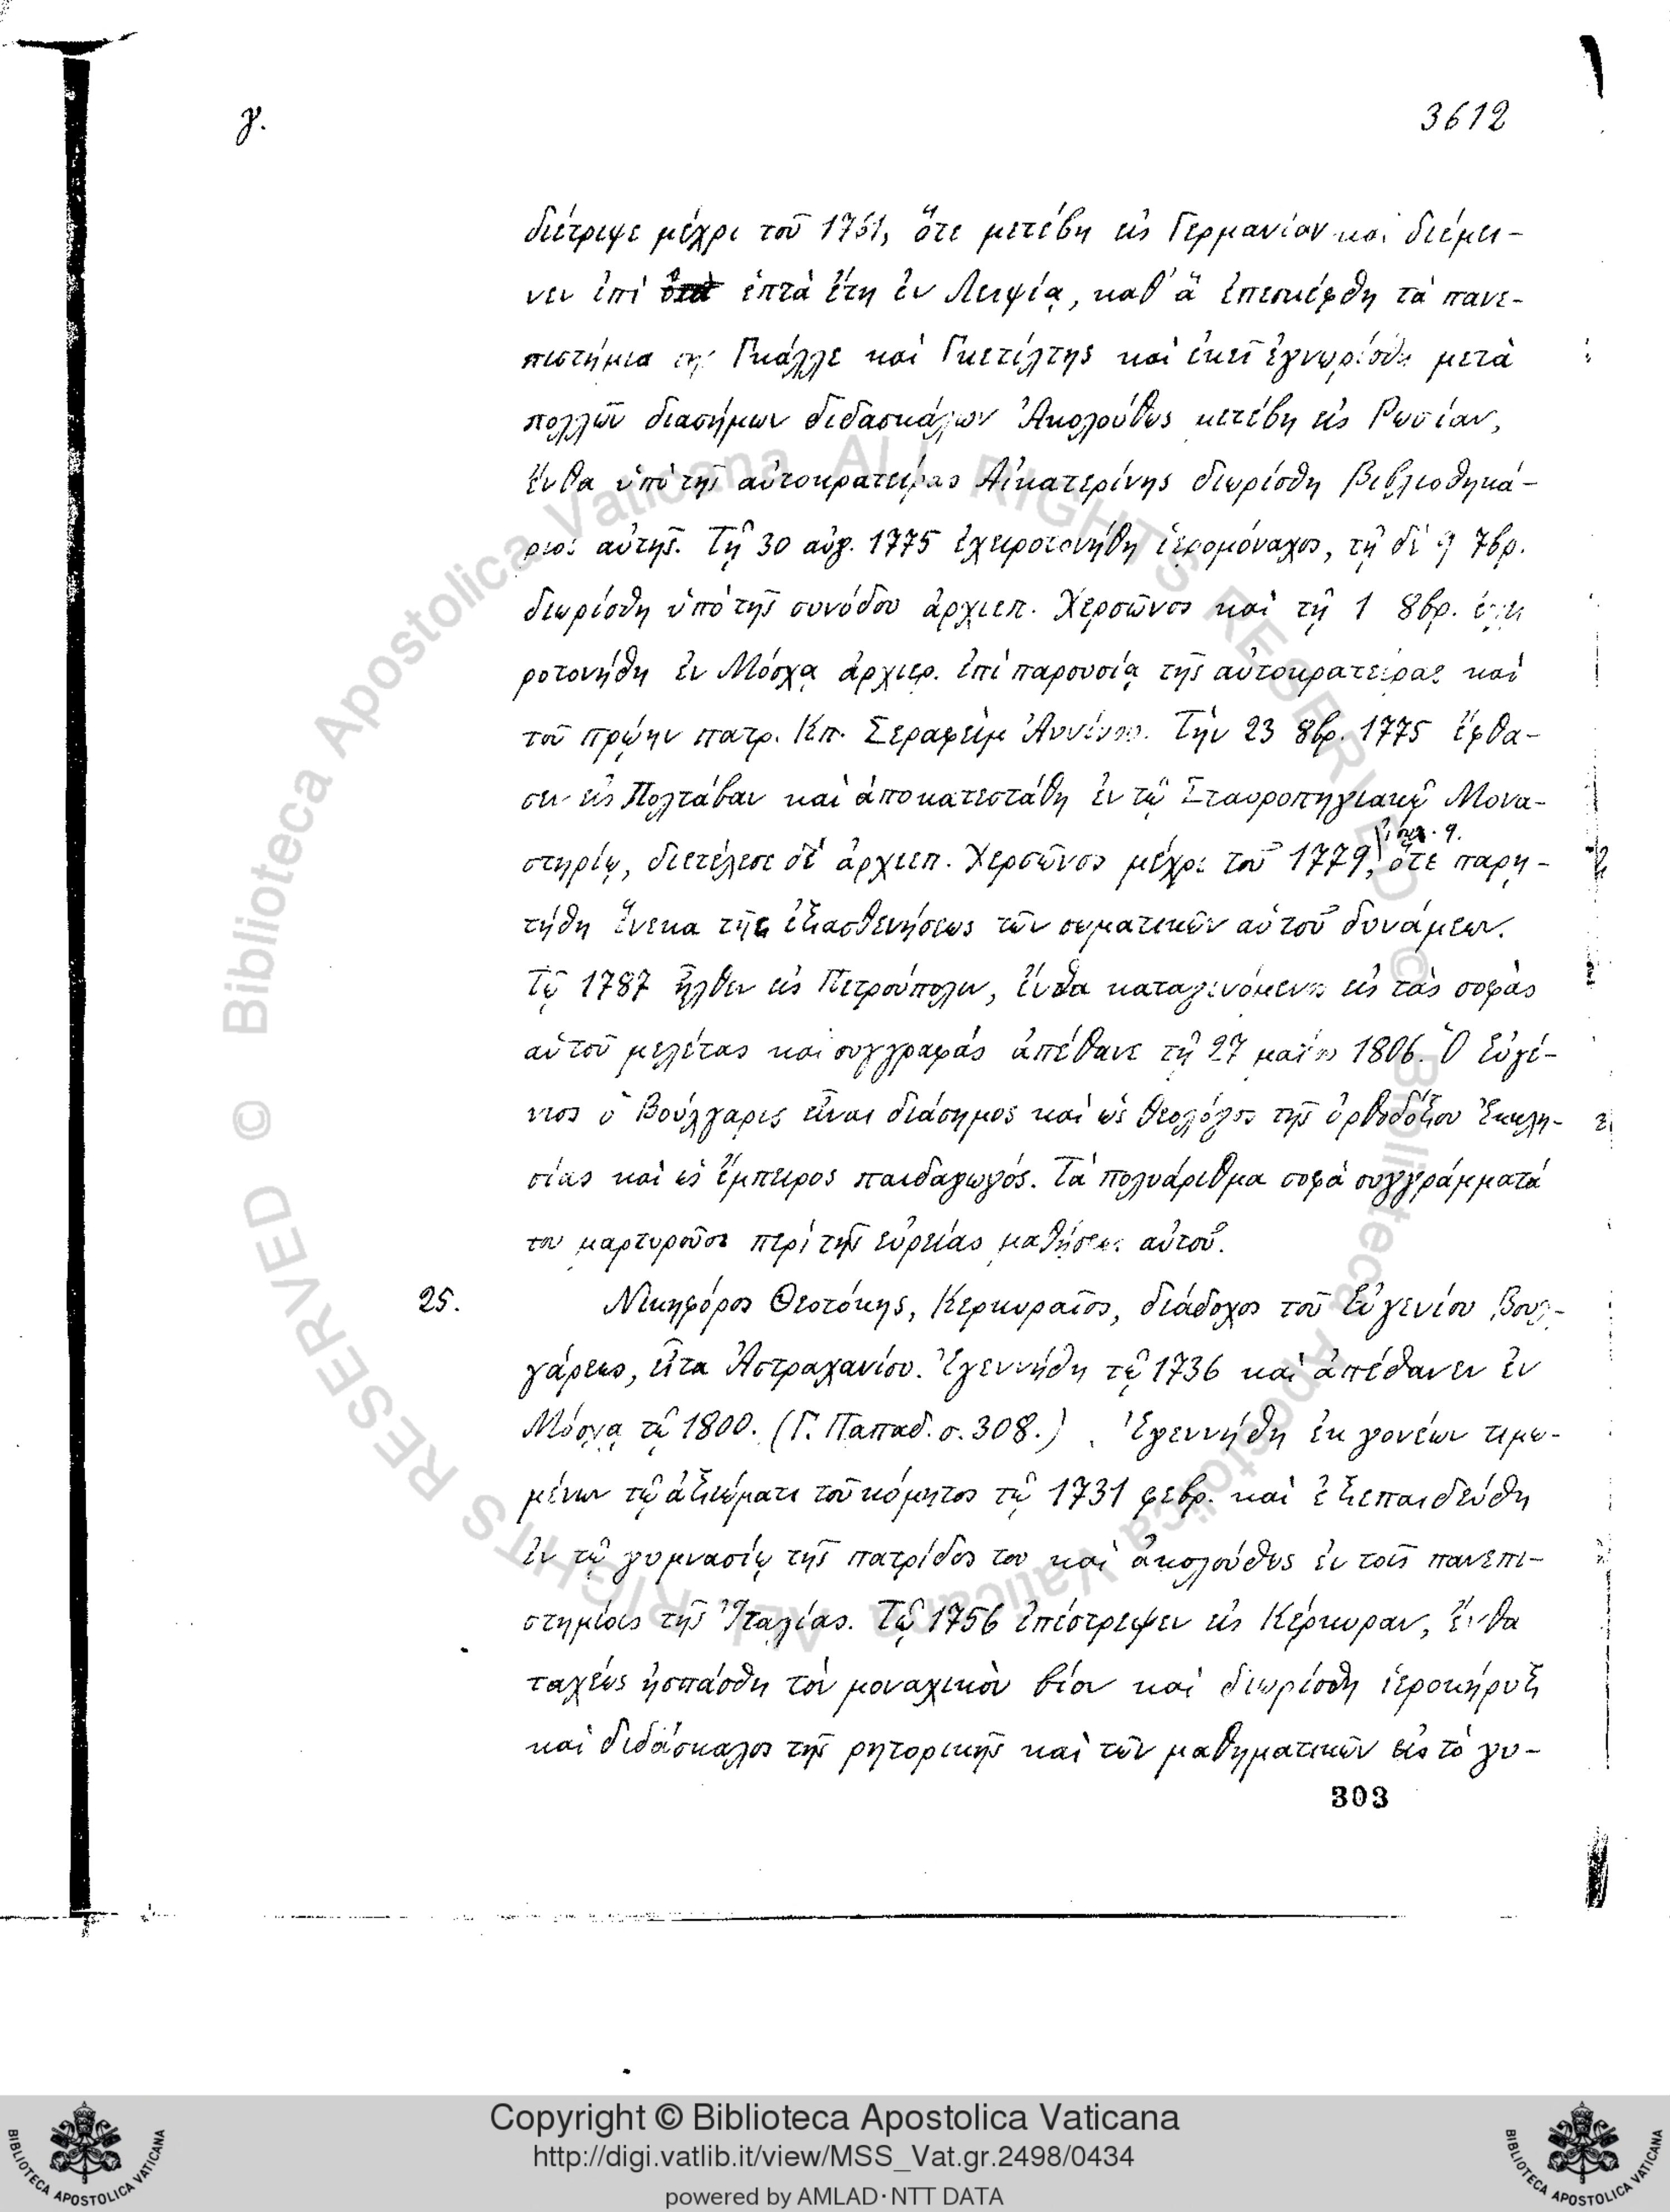 γ.
3612
διέτριψε μέχρι τοῦ 1761, ὅτε μετέβη εἰς Γερμανίαν καὶ διέμει-
νεν ἐπὶ ἑπτὰ ἔτη ἐν Λειψίᾳ, καθ' ἃ ἐπεσκέφθη τὰ πανε-
πιστήμια τῆς Γκάλλε καὶ Γκετίλτης καὶ ἐκεῖ ἐγνωρίσθη μετὰ
πολλῶν διασήμων διδασκάλων Ἀκολούθως μετέβη εἰς Ρωσίαν,
ἔνθα ὑπὸ τῆς αὐτοκρατείρας Αἰκατερίνης διωρίσθη βιβλιοθηκά-
ριος αὐτῆς. Τῇ 30 αὐγ. 1775 ἐχειροτονήθη ἱερομόναχος, τῇ δὲ 9 7βρ.
διωρίσθη ὑπὸ τῆς συνόδου ἀρχιεπ. Χερσῶνος καὶ τῇ 1 8βρ. ἐχει
ροτονήθη ἐν Μόσχᾳ ἀρχιερ. ἐπὶ παρουσίᾳ τῆς αὐτοκρατείρας καὶ
τοῦ πρώην πατρ. Κπ. Σεραφεὶμ Ἀννίνου. Τὴν 23 8βρ. 1775 ἔφθα-
σεν εἰς Πολτάβαν καὶ ἀποκατεστάθη ἐν τῷ Σταυροπηγιακῷ Μονα-
στηρίῳ, διετέλεσε δὲ ἀρχιεπ. Χερσῶνος μέχρι τοῦ 1779, ὅτε παρῃ-
τήθη ἕνεκα τῆς ἐξασθενήσεως τῶν σωματικῶν αὐτοῦ δυνάμεων.
Τῷ 1787 ἦλθεν εἰς Πετρούπολιν, ἔνθα καταγινόμενος εἰς τὰς σοφὰς
αὐτοῦ μελέτας καὶ συγγραφάς ἀπέθανε τῇ 27 μαΐου 1806. Ὁ Εὐγέ-
νιος ὁ Βούλγαρις εἶναι διάσημος καὶ ὡς θεολόγος τῆς ὀρθοδόξου Ἐκκλη-
σίας καὶ ὡς ἔμπειρος παιδαγωγός. Τὰ πολυάριθμα σοφὰ συγγράμματά
του μαρτυροῦσι περὶ τῆς εὐρείας μαθήσεως αὐτοῦ.
25. Νικηφόρος Θεοτόκης, Κερκυραῖος, διάδοχος τοῦ Εὐγενίου Βουλ-
γάρεως, εἶτα Ἀστραχανίου. Ἐγεννήθη τῷ 1736 καὶ ἀπέθανεν ἐν
Μόσχᾳ τῷ 1800. (Γ. Παπαδ. σ. 308.). Ἐγεννήθη ἐκ γονέων τιμω-
μένων τῷ ἀξιώματι τοῦ κόμητος τῷ 1731 φεβρ. καὶ ἐξεπαιδεύθη
ἐν τῷ γυμνασίῳ τῆς πατρίδος του καὶ ἀκολούθως ἐν τοῖς πανεπι-
στημίοις τῆς Ἰταλίας. Τῷ 1756 ἐπέστρεψεν εἰς Κέρκυραν, ἔνθα
ταχέως ἠσπάσθη τὸν μοναχικὸν βίον καὶ διωρίσθη ἱεροκήρυξ
καὶ διδάσκαλος τῆς ρητορικῆς καὶ τῶν μαθηματικῶν εἰς τὸ γυ-
303
© Biblioteca Apostolica Vaticana ALL RIGHTS RESERVED © Biblioteca Apostolica Vaticana ALL RIGHTS RESERVED
Copyright © Biblioteca Apostolica Vaticana
http://digi.vatlib.it/view/MSS_Vat.gr.2498/0434
powered by AMLAD·NTT DATA
BIBLIOTECA APOSTOLICA VATICANA
BIBLIOTECA APOSTOLICA VATICANA